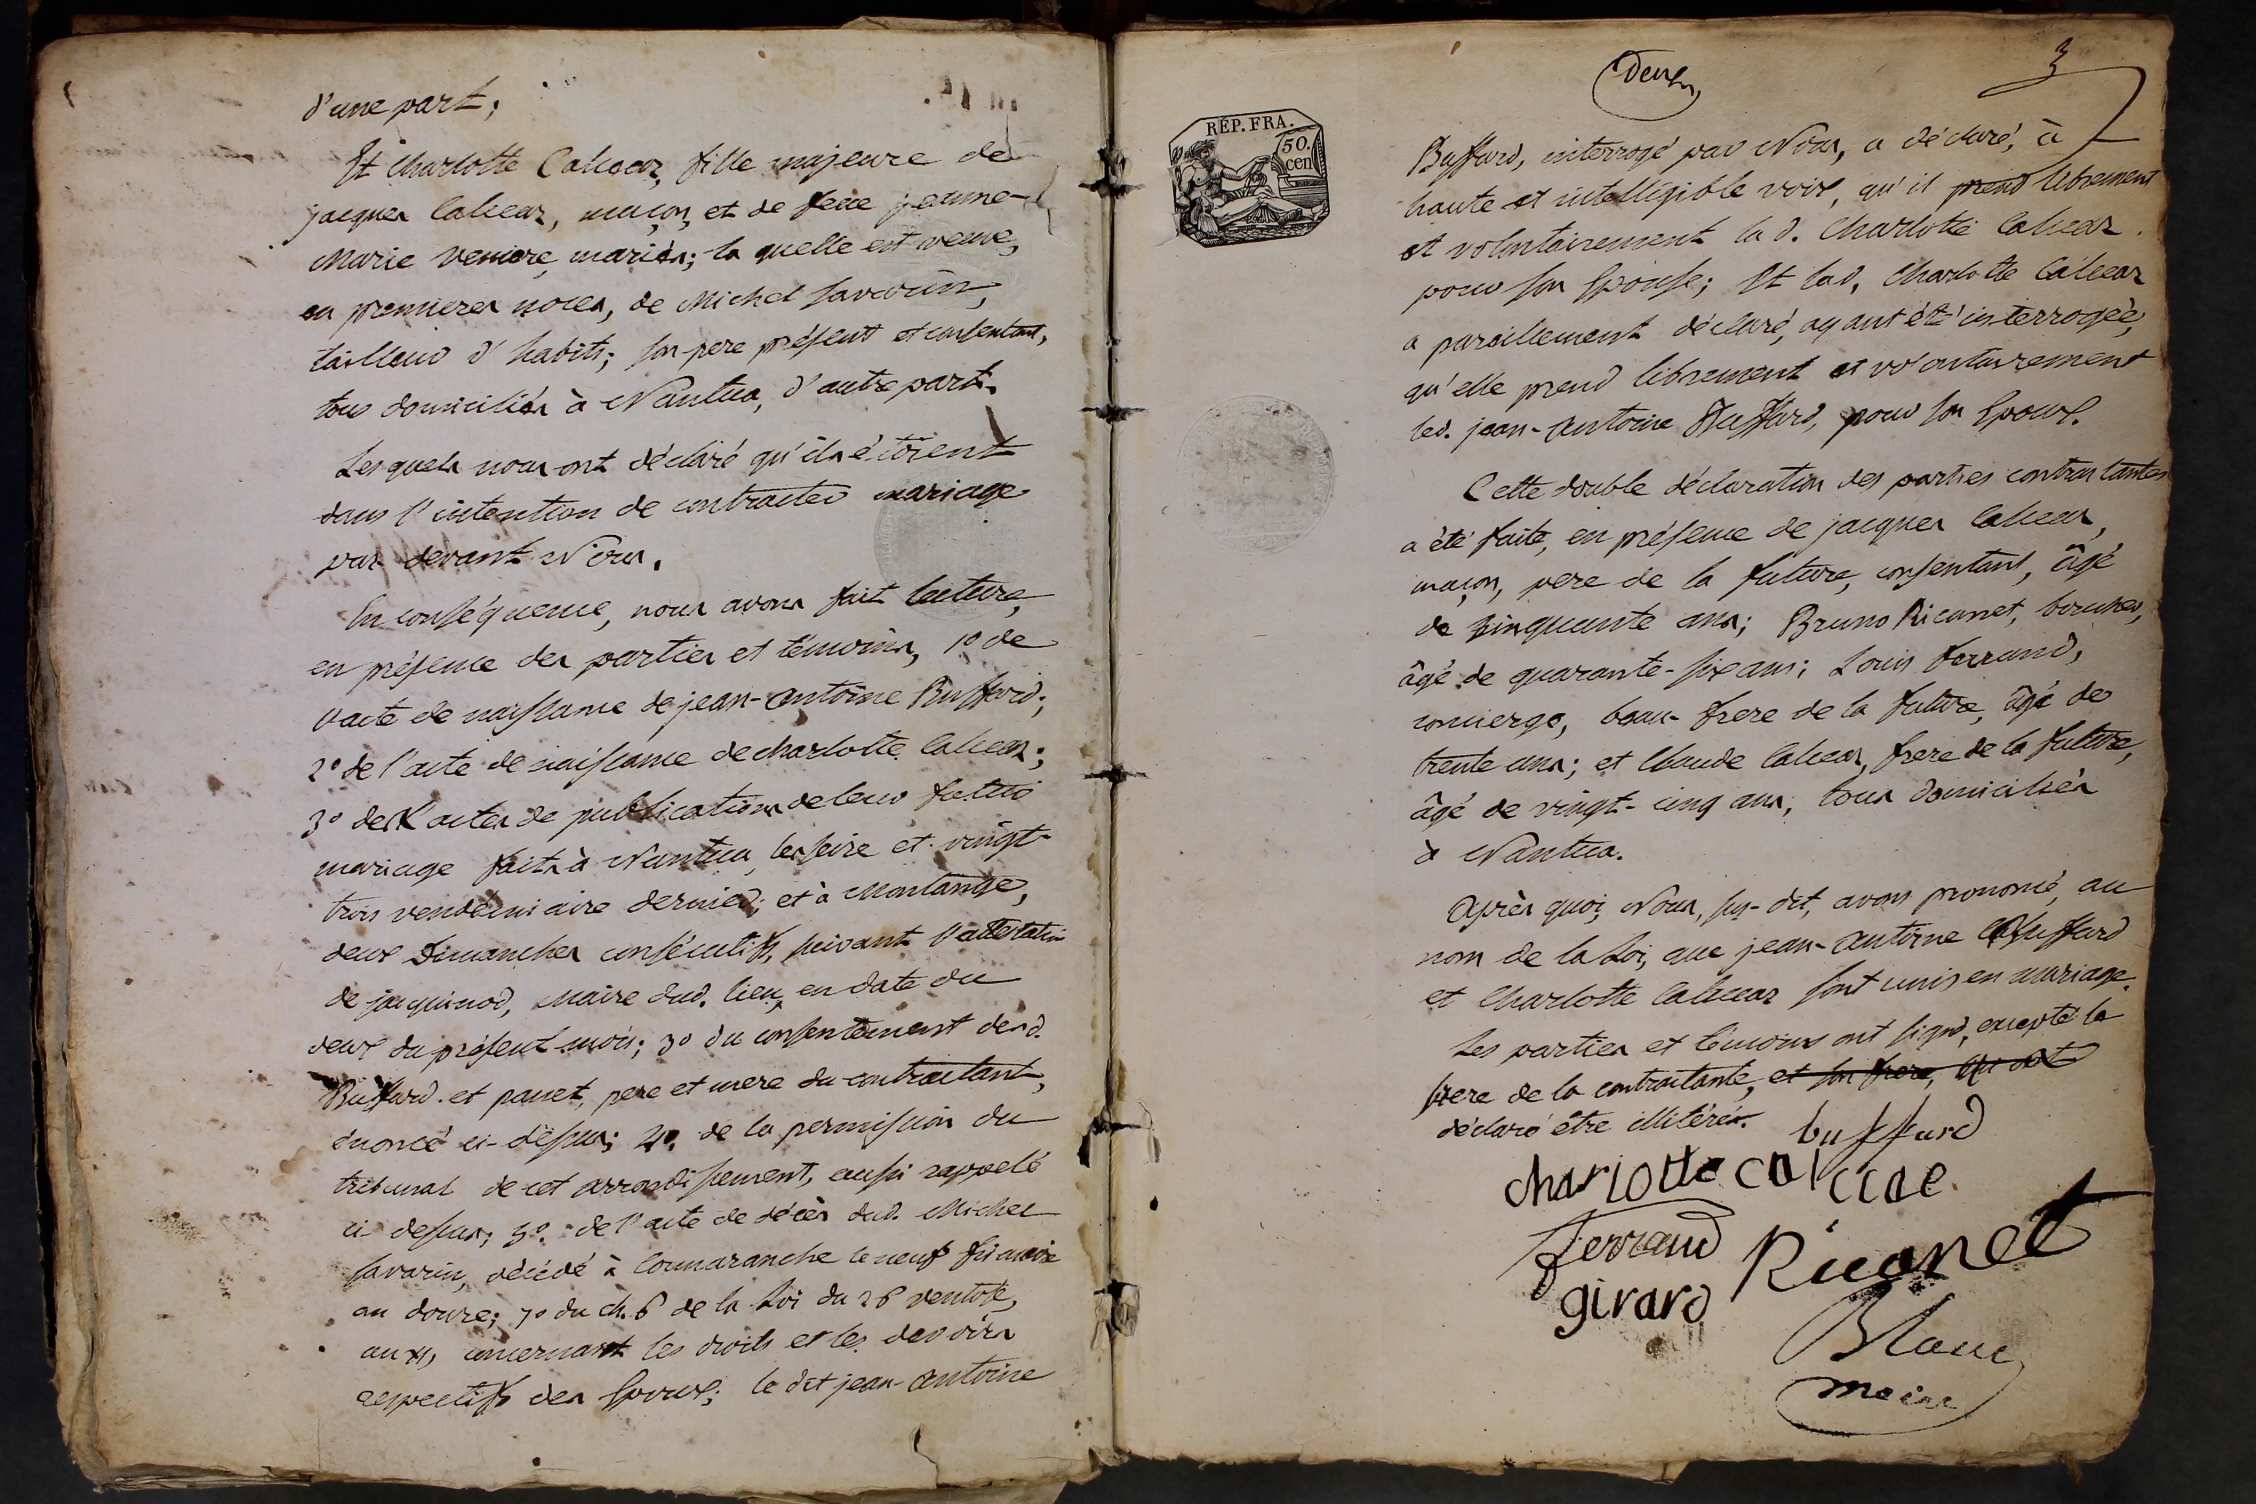 d'une part;
Et Charlotte Calicar, fille majeure de
jacques Calicar, maçon, et de feue jeanne-
Marie Veniere, mariés; la quelle est veuve,
en premieres noces, de Michel Savarin,
tailleur d'habits; son pere présent et consentant,
tous domiciliés à Nantua, d'autre part.
Lesquels nous ont déclaré qu'ils étoient
dans l'intention de contracter mariage
par devant Nous.
En conséquence, nous avons fait lecture,
en présence des parties et témoins, 1º de
l'acte de naissance de jean-antoine Buffard;
2º de l'acte de naissance de charlotte Calicar;
3º des actes de publications de leur futur
mariage faits à Nantua, les seize et vingt-
trois vendemiaire dernier; et à Montange,
deux Dimanches consécutifs, suivant l'attestation
de jacquinod, Maire dud. lieu, en date du
deux du présent mois; 3º du consentement desd.
Buffard et panet, pere et mere du contractant,
énoncé ci-dessus; 4º. de la permission du
tribunal de cet arrondissement, aussi rappelé
ci-dessus; 5º. de l'acte de décès dud. Michel
Savarin, décédé à Coumaranche le neuf frimaire
an douze; 7º du ch. 6 de la Loi du 26 ventose,
an XI, concernant les droits et les devoirs
respectifs des Epoux; le dit jean-antoine
Deux
3
RÉP. FRA.
50.
cen
Buffard, interrogé par Nous, a déclaré, à
haute et intelligible voix, qu'il prend librement
et volontairement lad. Charlotte Calicar
pour son Epouse; Et lad. Charlotte Calicar
a pareillement déclaré, ayant été interrogée,
qu'elle prend librement et volontairement
led. jean-antoine Buffard, pour son Epoux.
Cette double déclaration des parties contractantes
a été faite, en présence de jacques Calicar,
maçon, pere de la future, consentant, âgé
de cinquante ans; Bruno Ricanet, boucher,
âgé de quarante-six ans; Louis ferrand,
concierge, beau-frere de la future, âgé de
trente ans; et Claude Calicar, frere de la future,
âgé de vingt-cinq ans, tous domiciliés
à Nantua.
Après quoi, Nous, sus-dit, avons prononcé, au
nom de la Loi, que jean-antoine Buffard
et Charlotte Calicar sont unis en mariage.
Les parties et témoins ont signé, excepté le
frere de la contractante, et son frere, qui ont
déclaré être illitérés.
buffard
charlotte calicar
ferrand
Ricanet
girard
Blanc
maire